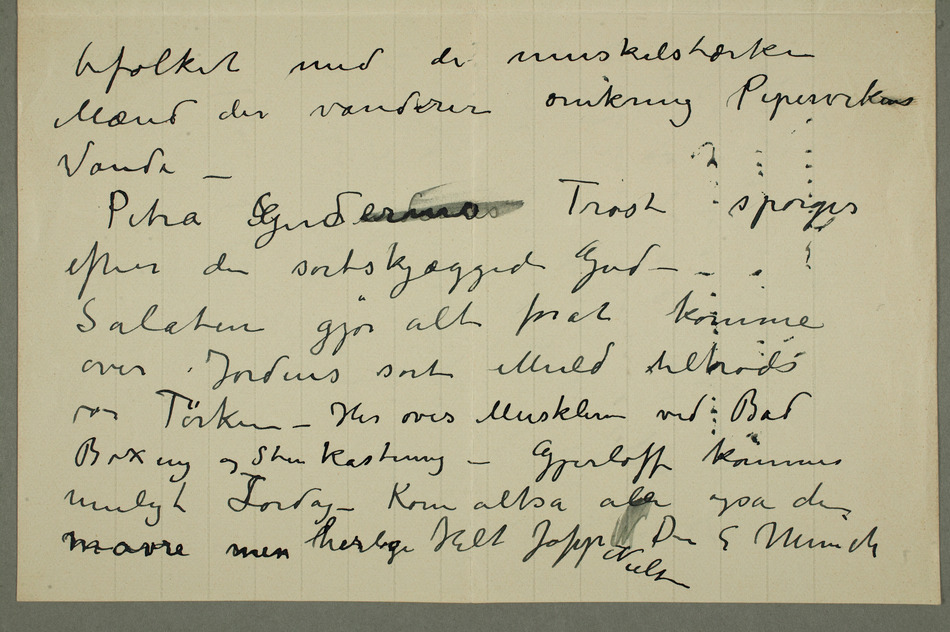 befolket med de muskelstærke
Mænd der vandrer omkring Pipervikens
Vande _
Petra Gudermans Trost spørges
efter den sortskjæggede Gud –
Salaten gjør alt forat komme
over Jordens sorte Muld tiltrods
for Tørken – Her øves Musklerne ved Bad
Boxing og Stenkastning – Gjerløff kommer
muligt Lordag – Kom altsa alle ogsa den
mavre men herlige Helt Jappe Nielsen Din E Munch